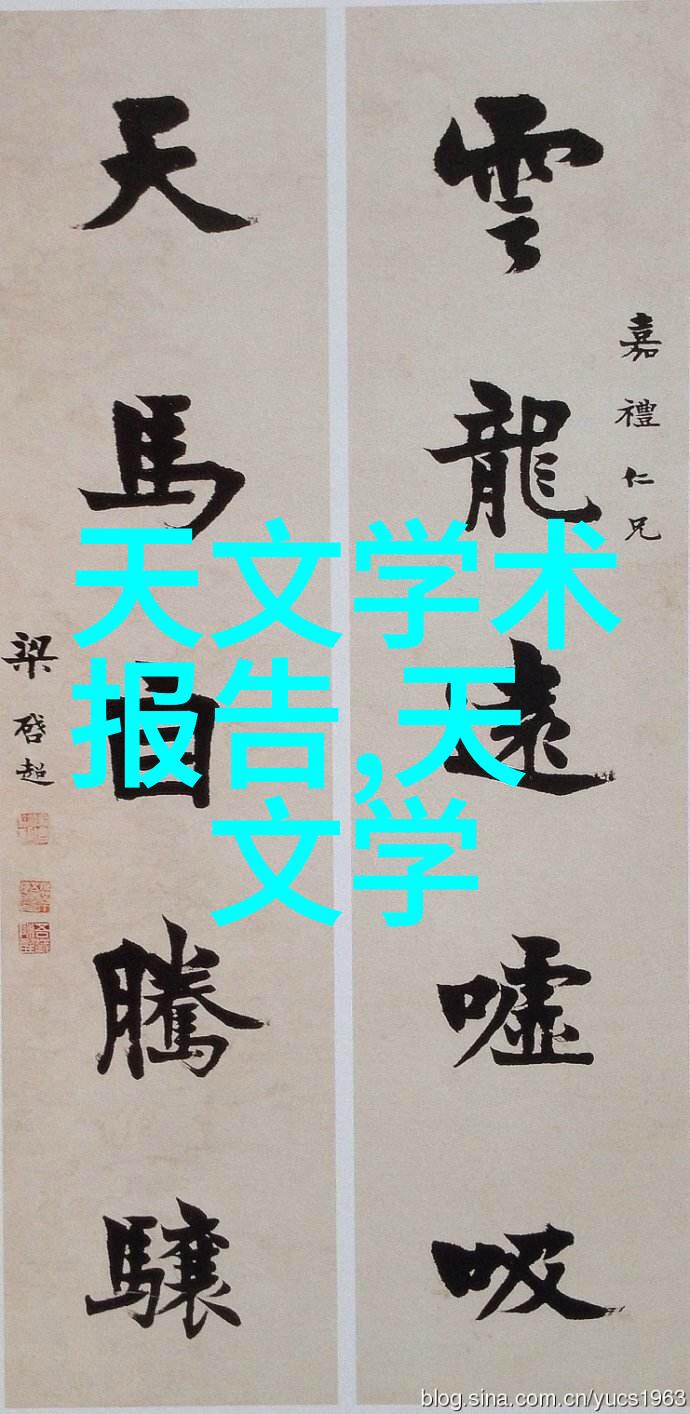 雲龍遠嘘吸
嘉禮仁兄
天馬自騰驤
梁啓超
天文学术
报告,天
文学
blog.sina.com.cn/yucs1963